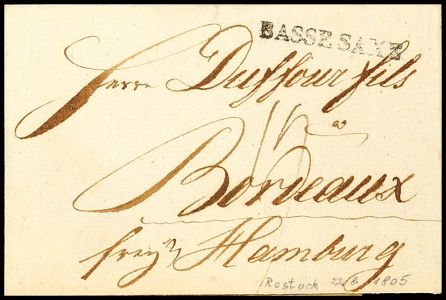 BASSE SAXE
Herrn Duffour fils
Bordeaux
frey Hamburg
Rostock 22.8.1805